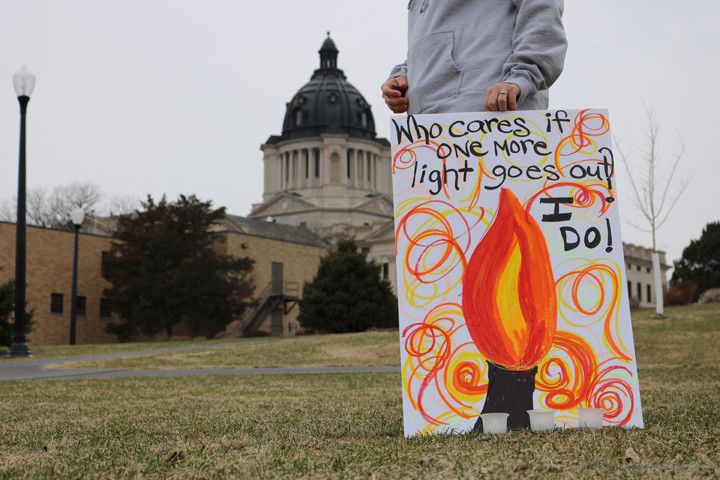 Who cares if
one more
light goes out?
I
Do!